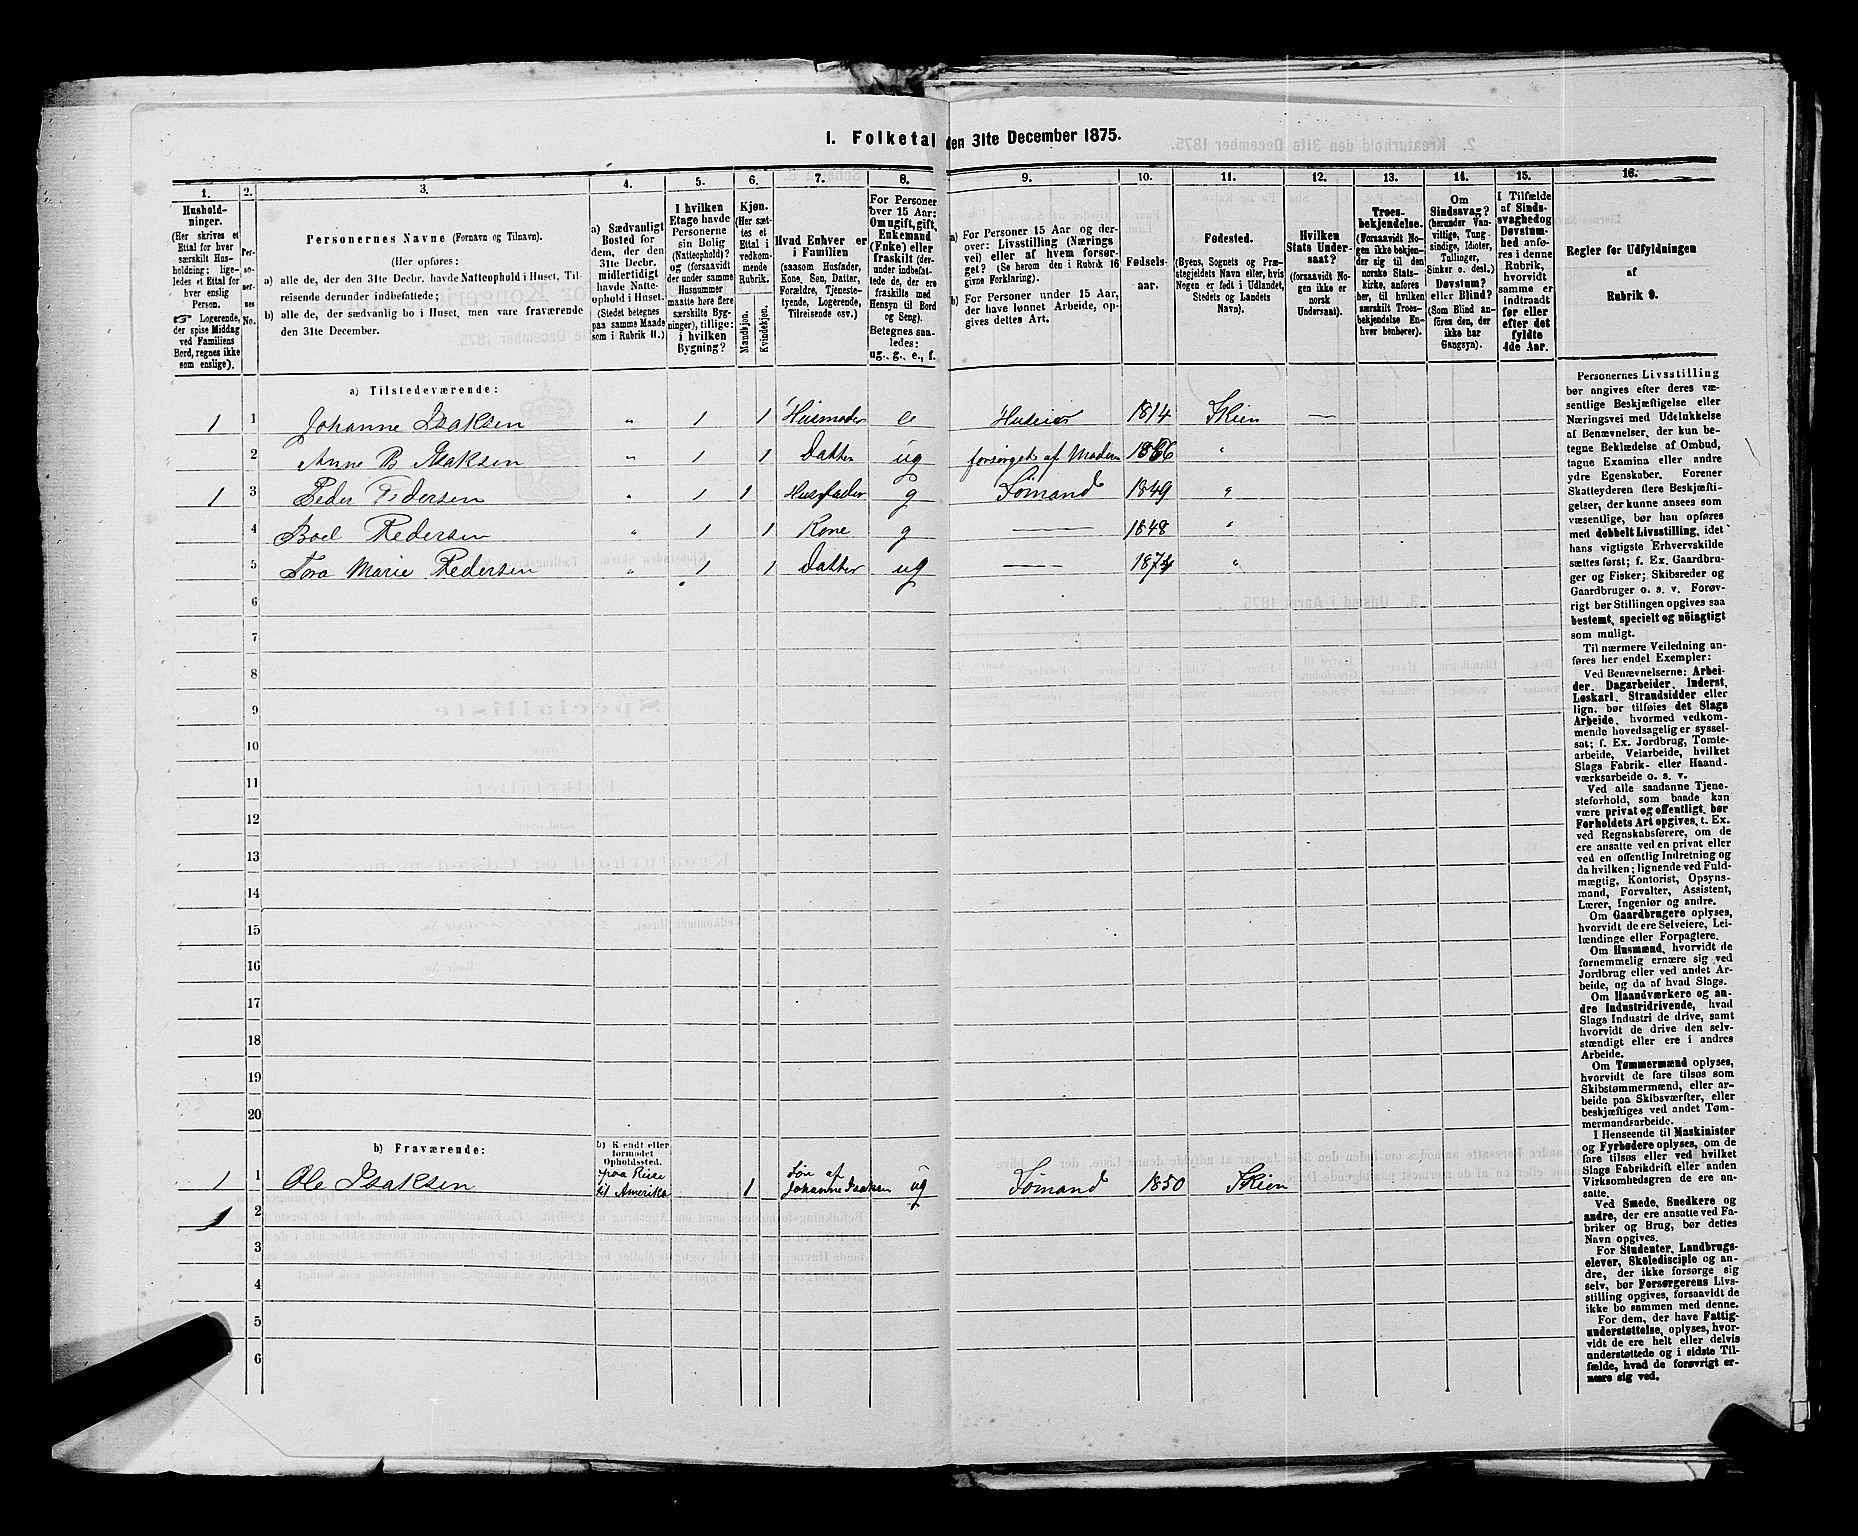 I. Folketal den 31te December 1875.
1. 2. 3. 4. 5. 6. 7. 8. 9. 10. 11. 12. 13. 14. 15. 16.
Hushold-
ninger.
(Her skrives et
Ettal for hver
særskilt Hus-
holdning; lige-
ledes et Ettal for
hver enslig
Person.
☞ Logerende,
der spise Middag
ved Familiens
Bord, regnes ikke
som enslige).
Per-
so-
ner-
nes
No.
Personernes Navne (Fornavn og Tilnavn).
(Her opføres:
a) alle de, der den 31te Decbr. havde Natteophold i Huset, Til-
reisende derunder indbefattede;
b) alle de, der sædvanlig bo i Huset, men vare fraværende
den 31te December.
a) Sædvanligt
Bosted for
dem, der den
31te Decbr.
midlertidigt
havde Natte-
ophold i Huset.
(Stedet betegnes
paa samme Maade
som i Rubrik 11.)
I hvilken
Etage havde
Personerne
sin Bolig
(Natteophold)?
og (forsaavidt
der under samme
Husnummer
maatte høre flere
særskilte Byg-
ninger), tillige:
i hvilken
Bygning?
Kjøn.
(Her sæt-
tes et
Ettal i
vedkom-
mende
Rubrik.)
Mandkjøn.
Kvindekjøn.
Hvad Enhver er
i Familien
(saasom Husfader,
Kone, Søn, Datter,
Forældre, Tjeneste-
tyende, Logerende,
Tilreisende osv.)
For Personer
over 15 Aar:
Om ugift, gift,
Enkemand
(Enke) eller
fraskilt (der-
under indbefat-
tede de, der ere
fraskilte med
Hensyn til Bord
og Seng).
Betegnes saa-
ledes:
ug., g., e., f.
a) For Personer 15 Aar og der-
over: Livsstilling (Nærings
vei) eller af hvem forsør-
get? (Se herom den i Rubrik 16
givne Forklaring).
b) For Personer under 15 Aar,
der have lønnet Arbeide, op-
gives dettes Art.
Fødsels-
aar.
Fødested.
(Byens, Sognets og Præ-
stegjeldets Navn eller, hvis
Nogen er født i Udlandet,
Stedets og Landets
Navn).
Hvilken
Stats Under-
saat?
(forsaavidt No-
gen ikke er
norsk
Undersaat).
Troes-
bekjendelse.
(Forsaavidt No-
gen ikke bekjen-
der sig til den
norske Stats-
kirke, anføres
her, til hvilken
særskilt Troes-
bekjendelse En-
hver henhører).
Om
Sindssvag?
(herunder Van-
vittige, Tung-
sindige, Idioter,
Tullinger,
Sinker o. desl.)
Døvstum?
eller Blind?
(Som Blind an-
føres den, der
ikke har
Gangsyn).
I Tilfælde
af Sinds-
svaghed og
Døvstum-
hed anfø-
res i denne
Rubrik,
hvorvidt
samme er
indtraadt
før eller
efter det
fyldte
4de Aar.
Regler for Udfyldningen
af
Rubrik 9.
a) Tilstedeværende:
1 1 Johanne Isaksen " 1 1 Husmoder e Huseier 1814 Skien —
2 Anne B Isaksen " 1 1 Datter ug forsørget af Moderen 1856 "
1 3 Peder Pedersen " 1 1 Husfader g Sømand 1849 "
4 Boel Pedersen " 1 1 Kone g — 1848 "
5 Tora Marie Pedersen " 1 1 Datter ug — 1874 "
6
7
8
9
10
11
12
13
14
15
16
17
18
19
20
b) Fraværende:
b) Kjendt eller
formodet
Opholdssted.
1 1 Ole Isaksen paa Reise til Amerika 1 Søn af Johanne Isaksen ug Sømand 1850 Skien
1 2
3
4
5
6
Personernes Livsstilling
bør angives efter deres væ-
sentlige Beskjæftigelse eller
Næringsvei med Udelukkelse
af Benævnelser, der kun be-
tegne Beklædelse af Ombud,
tagne Examina eller andre
ydre Egenskaber. Forener
Skatteyderen flere Beskjæfti-
gelser, der kunne ansees som
væsentlige, bør han opføres
med dobbelt Livsstilling, idet
hans vigtigste Erhvervskilde
sættes først; f. Ex. Gaardbru-
ger og Fisker; Skibsreder og
Gaardbruger o. s. v. Forøv-
rigt bør Stillingen opgives saa
bestemt, specielt og nöiagtigt
som muligt.
Til nærmere Veiledning an-
føres her endel Exempler:
Ved Benævnelserne: Arbei-
der, Dagarbeider, Inderst,
Løskarl, Strandsidder eller
lign. bør tilføies det Slags
Arbeide, hvormed vedkom-
mende hovedsagelig er syssel-
sat; f. Ex. Jordbrug, Tomte-
arbeide, Veiarbeide, hvilket
Slags Fabrik- eller Haand-
værksarbeide o. s. v.
Ved alle saadanne Tjene-
steforhold, som baade kan
være privat og offentligt, bør
Forholdets Art opgives, t. Ex.
ved Regnskabsførere, om de
ere ansatte ved en privat eller
ved en offentlig Indretning og
da hvilken; lignende ved Fuld-
mægtig, Kontorist, Opsyns-
mand, Forvalter, Assistent,
Lærer, Ingeniør og andre.
Om Gaardbrugere oplyses,
hvorvidt de ere Selveiere, Lei-
lændinge eller Forpagtere.
Om Husmænd, hvorvidt de
fornemmelig ernære sig ved
Jordbrug eller ved andet Ar-
beide, og da af hvad Slags.
Om Haandværkere og an-
dre Industridrivende, hvad
Slags Industri de drive, samt
hvorvidt de drive den selv-
stændigt eller ere i andres
Arbeide.
Om Tømmermænd oplyses,
hvorvidt de fare tilsøs som
Skibstømmermænd, eller ar-
beide paa Skibsværfter, eller
beskjæftiges ved andet Tøm-
mermandsarbeide.
I Henseende til Maskinister
og Fyrbødere oplyses, om de
fare tilsøs eller ved hvilket
Slags Fabrikdrift eller anden
Virksomhedsgren de ere an-
satte.
Ved Smede, Snedkere og
andre, der ere ansatte ved Fa-
briker og Brug, bør dettes
Navn opgives.
For Studenter, Landbrugs-
elever, Skoledisciple og an-
dre, der ikke forsørge sig
selv, bør Forsørgerens Livs-
stilling opgives, forsaavidt de
ikke bo sammen med denne.
For dem, der have Fattig-
understøttelse, oplyses, hvor-
vidt de ere helt eller delvis
understøttede og i sidste Til-
fælde, hvad de forøvrigt er-
nære sig ved.